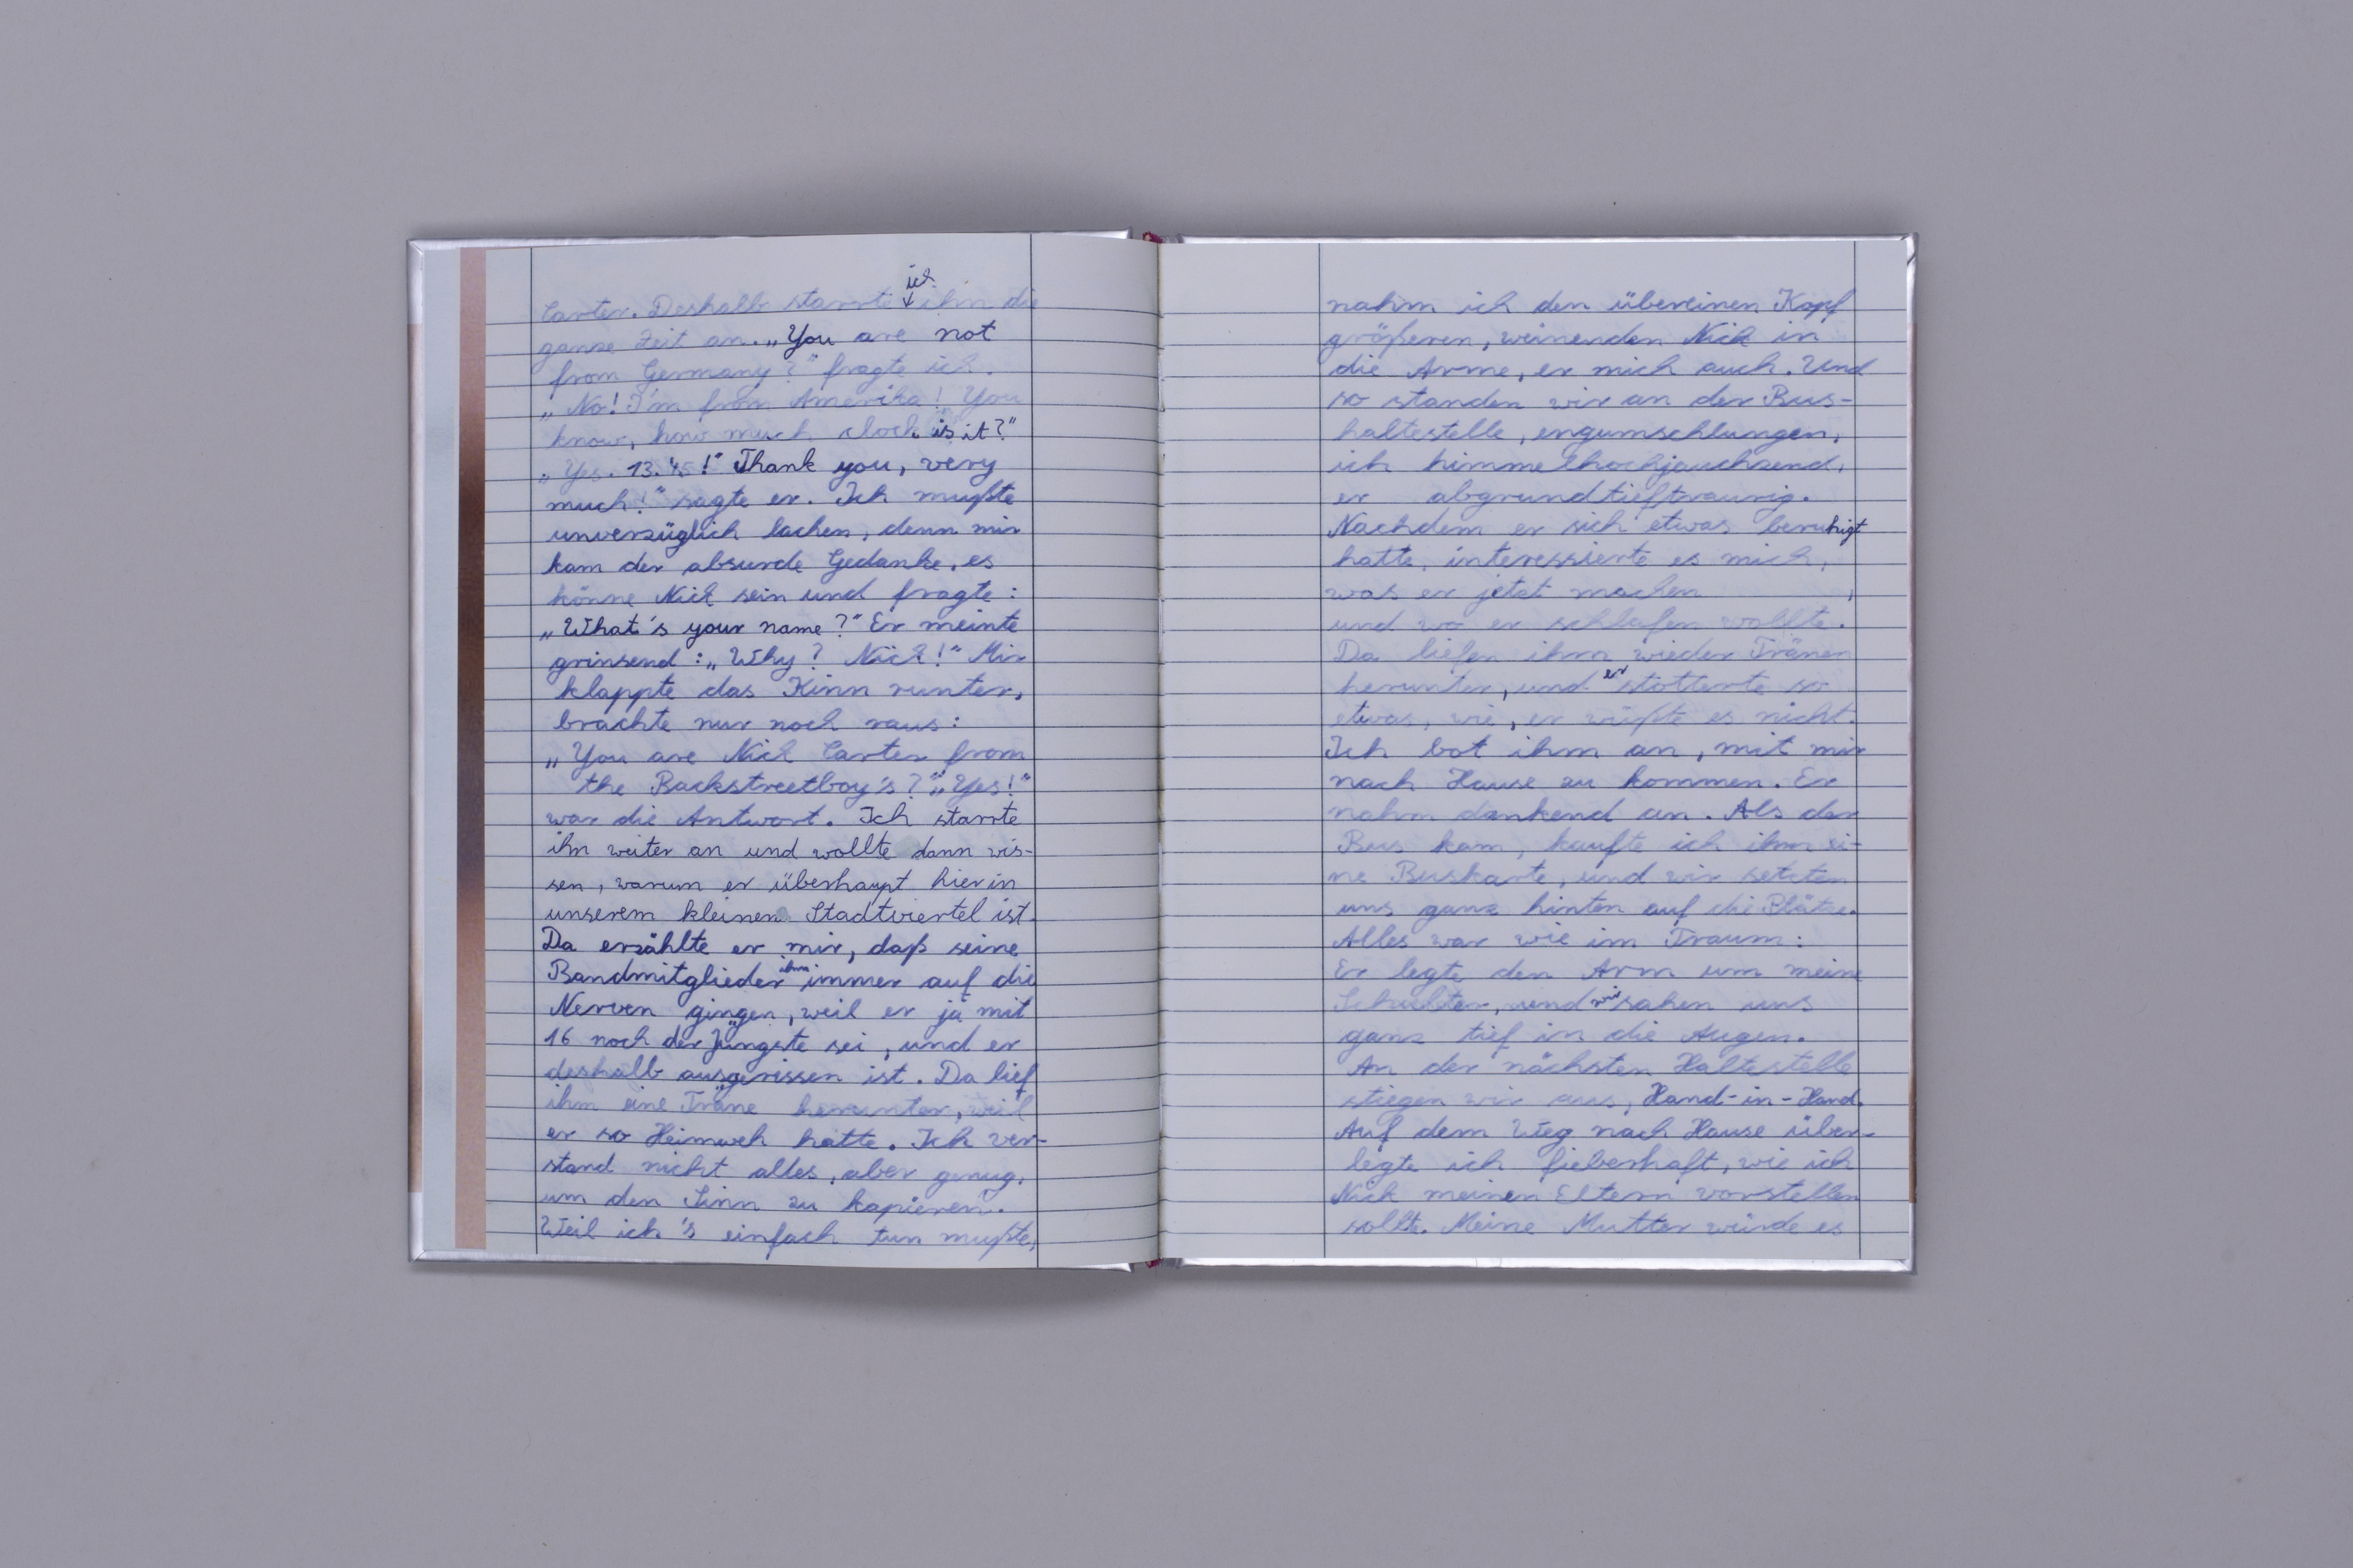 ich
Carter. Deshalb starrte ihn die
ganze Zeit an. „You are not
from Germany?" fragte ich.
„No! I'm from Amerika! You
know, how much clock is it?"
„Yes. 13.45!" Thank you, very
much!" sagte er. Ich mußte
unverzüglich lachen, denn mir
kam der absurde Gedanke, es
könne Nick sein und fragte:
„What's your name?" Er meinte
grinsend: „Why? Nick!" Mir
klappte das Kinn runter,
brachte nur noch raus:
„You are Nick Carter from
the Backstreetboy's?" „Yes!"
war die Antwort. Ich starrte
ihn weiter an und wollte dann wis-
sen, warum er überhaupt hier in
unserem kleinen Stadtviertel ist.
Da erzählte er mir, daß seine
Bandmitglieder ihm immer auf die
Nerven gingen, weil er ja mit
16 noch der Jüngste sei, und er
deshalb ausgerissen ist. Da lief
ihm eine Träne herunter, weil
er so Heimweh hatte. Ich ver-
stand nicht alles, aber genug,
um den Sinn zu kapieren.
Weil ich's einfach tun mußte,
nahm ich den übereinen Kopf
größeren, weinenden Nick in
die Arme, er mich auch. Und
so standen wir an der Bus-
haltestelle, engumschlungen,
ich himmelhochjauchzend,
er abgrundtieftraurig.
Nachdem er sich etwas beruhigt
hatte, interessierte es mich,
was er jetzt machen ,
und wo er schlafen wollte.
Da liefen ihm wieder Tränen
herunter, und er stotterte so
etwas, wie, er wüßte es nicht.
Ich bot ihm an, mit mir
nach Hause zu kommen. Er
nahm dankend an. Als der
Bus kam, kaufte ich ihm ei-
ne Buskarte, und wir setzten
uns ganz hinten auf die Plätze.
Alles war wie im Traum:
Er legte den Arm um meine
Schulter, und wir sahen uns
ganz tief in die Augen.
An der nächsten Haltestelle
stiegen wir aus, Hand-in-Hand.
Auf dem Weg nach Hause über-
legte ich fieberhaft, wie ich
Nick meinen Eltern vorstellen
sollte. Meine Mutter würde es